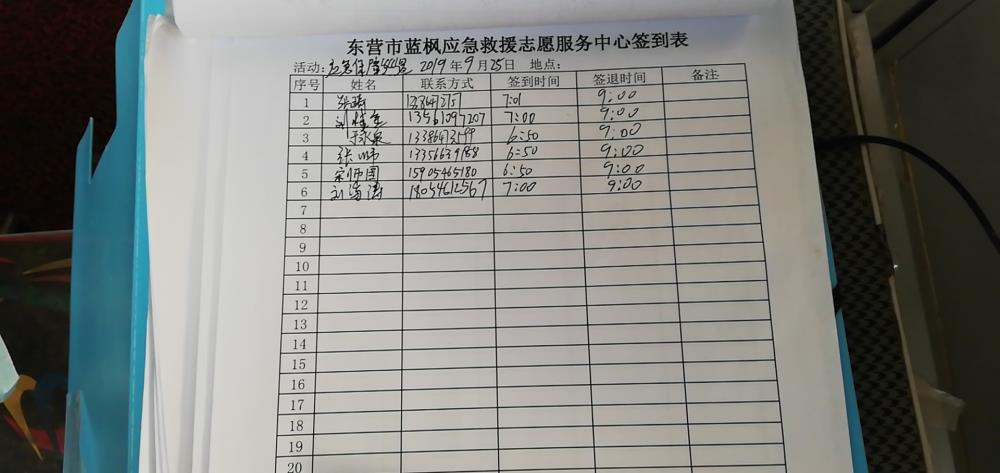 东营市蓝枫应急救援志愿服务中心签到表
活动: 应急保障 2019年9月25日 地点:
序号 姓名 联系方式 签到时间 签退时间 备注
1 7:01 9:00
2 13561097207 7:00 9:00
3 13386473599 6:50 9:00
4 张 13356639858 6:50 9:00
5 15905465180 6:50 9:00
6 刘 18054612567 7:00 9:00
7
8
9
10
11
12
13
14
15
16
17
18
19
20